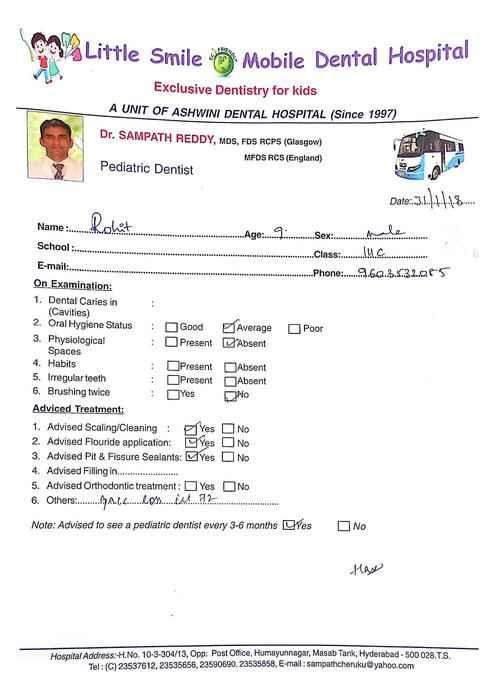 Little Smile Mobile Dental Hospital
Exclusive Dentistry for kids
A UNIT OF ASHWINI DENTAL HOSPITAL (Since 1997)
Dr. SAMPATH REDDY, MDS, FDS RCPS (Glasgow)
MFDS RCS (England)
Pediatric Dentist
Date: 31/1/18
Name: Rohit Age: 9 Sex: male
School: Class: III C
E-mail: Phone: 9603532085
On Examination:
1. Dental Caries in :
(Cavities)
2. Oral Hygiene Status : Good Average Poor
3. Physiological : Present Absent
Spaces
4. Habits : Present Absent
5. Irregular teeth : Present Absent
6. Brushing twice : Yes No
Adviced Treatment:
1. Advised Scaling/Cleaning : Yes No
2. Advised Flouride application: Yes No
3. Advised Pit & Fissure Sealants: Yes No
4. Advised Filling in
5. Advised Orthodontic treatment : Yes No
6. Others:
Note: Advised to see a pediatric dentist every 3-6 months Yes No
Hospital Address:-H.No. 10-3-304/13, Opp: Post Office, Humayunnagar, Masab Tank, Hyderabad - 500 028.T.S.
Tel : (C) 23537612, 23535656, 23590690. 23535858, E-mail : sampathcheruku@yahoo.com